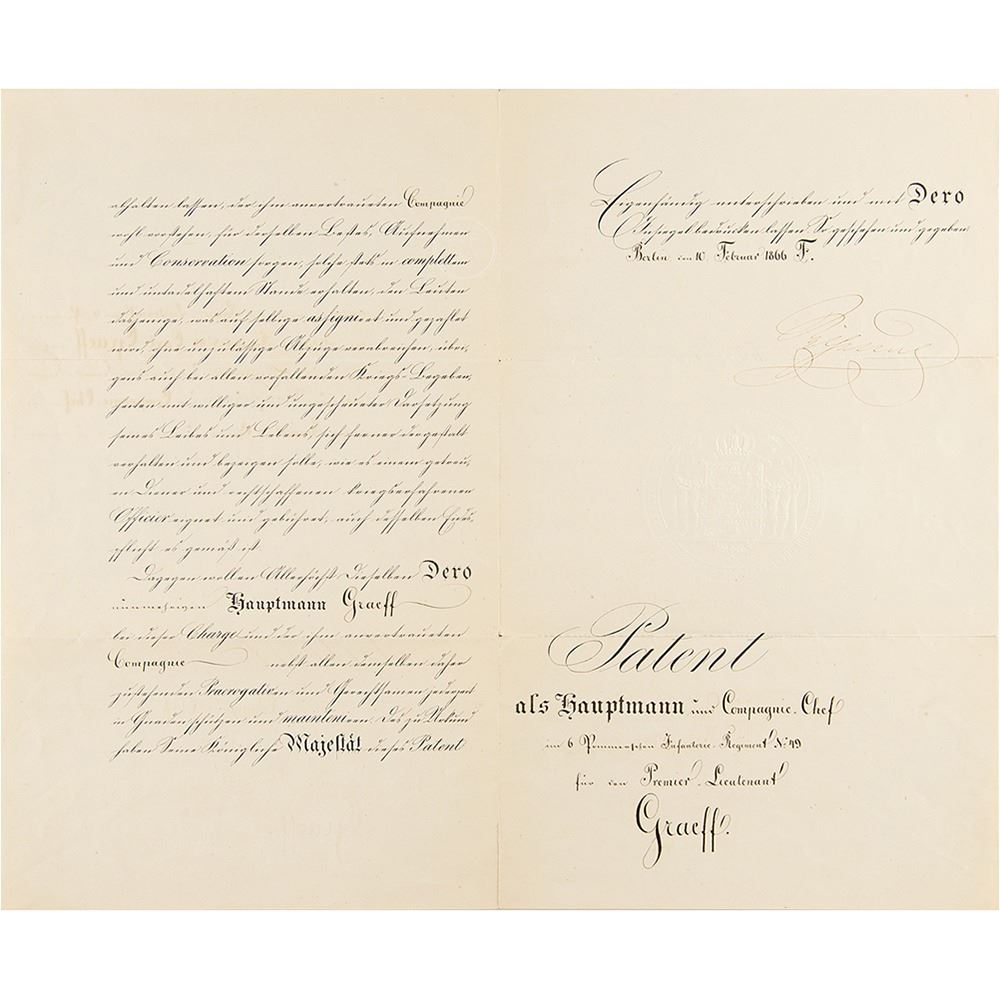 abhalten lassen, der ihm anvertraueten Compagnie
wohl vorstehen, für derselben Bestes, Aufnehmen
und Conservation sorgen, solche stets in complettem
und untadelhaftem Stande erhalten, den Leuten
dasjenige, was auf selbige assigniret und gezahlet
wird, ohne unzulässige Abzüge verabreichen, übri-
gens auch bei allen vorfallenden Kriegs-Begeben-
heiten mit williger und ungescheueter Darsetzung
seines Leibes und Lebens, sich ferner dergestalt
verhalten und bezeigen solle, wie es einem getreu-
en Diener und rechtschaffenen kriegserfahrenen
Officier eignet und gebühret, auch desselben Eides-
pflicht es gemäß ist.
Dagegen wollen Allerhöchst Dieselben Dero
nunmehrigen Hauptmann Graeff
bei dieser Charge und der ihm anvertraueten
Compagnie nebst allen demselben daher
zustehenden Praerogativen und Gerechtsamen jederzeit
in Gnaden schützen und mainteniren. Des zu Urkund
haben Seine Königliche Majestät dieses Patent
Eigenhändig unterschrieben und mit Dero
Insiegel bedrucken lassen So geschehen und gegeben
Berlin den 10 Februar 1866 F.
Wilhelm
Patent
als Hauptmann und Compagnie-Chef
im 6 Pommerschen Infanterie-Regiment No 49
für den Premier-Lieutenant
Graeff.